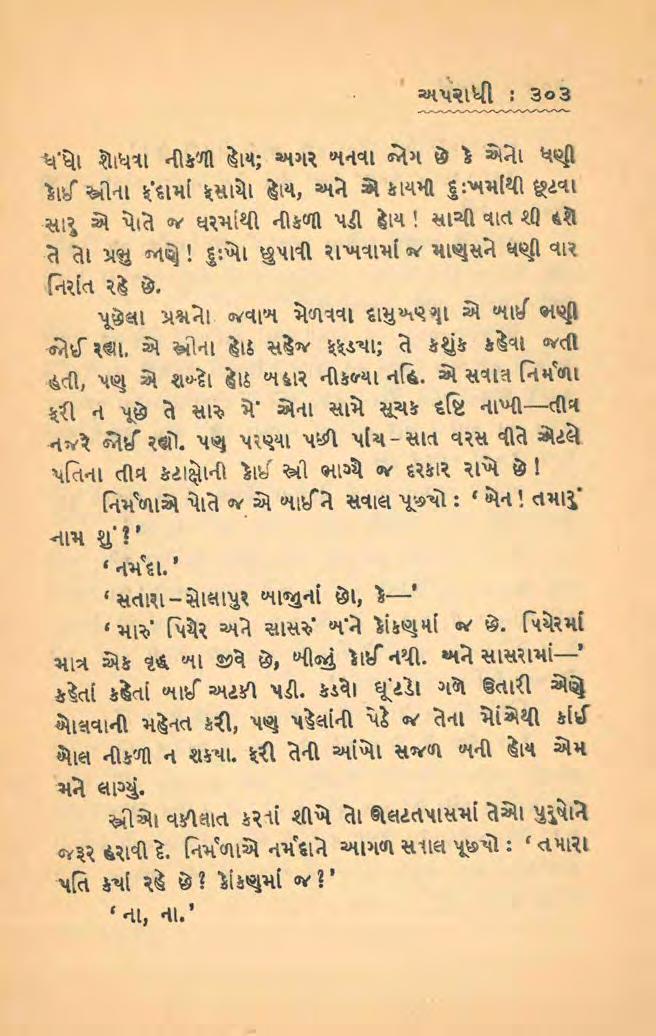 અપરાધી : ૩૦૩
ધંધો શોધવા નીકળી હોય; અગર બનવા જોગ છે કે એનો ધણી
કોઈ સ્ત્રીના ફંદામાં ફસાયો હોય, અને એ કાયમી દુઃખમાંથી છૂટવા
સારુ એ પોતે જ ઘરમાંથી નીકળી પડી હોય ! સાચી વાત શી હશે
તે તો પ્રભુ જાણે ! દુઃખો છુપાવી રાખવામાં જ માણસને ઘણી વાર
નિરાંત રહે છે.
પૂછેલા પ્રશ્નનો જવાબ મેળવવા દામુઅણ્ણા એ બાઈ ભણી
જોઈ રહ્યા. એ સ્ત્રીના હોઠ સહેજ ફફડ્યા; તે કશુંક કહેવા જતી
હતી, પણ એ શબ્દો હોઠ બહાર નીકળ્યા નહિ. એ સવાલ નિર્મળા
ફરી ન પૂછે તે સારુ મેં એના સામે સૂચક દૃષ્ટિ નાખી—તીવ્ર
નજરે જોઈ રહ્યો. પણ પરણ્યા પછી પાંચ-સાત વરસ વીતે એટલે
પતિના તીવ્ર કટાક્ષોની કોઈ સ્ત્રી ભાગ્યે જ દરકાર રાખે છે !
નિર્મળાએ પોતે જ એ બાઈને સવાલ પૂછ્યો : ‘ બેન ! તમારું
નામ શું ?’
‘ નર્મદા.’
‘ સતારા-સોલાપુર બાજુનાં છો, કે—’
‘ મારું પિયેર અને સાસરું બંને કોંકણમાં જ છે. પિયેરમાં
માત્ર એક વૃદ્ધ બા જીવે છે, બીજું કોઈ નથી. અને સાસરામાં—’
કહેતાં કહેતાં બાઈ અટકી પડી. કડવો ઘૂંટડો ગળે ઉતારી એણે
બોલવાની મહેનત કરી, પણ પહેલાંની પેઠે જ તેના મોંએથી કાંઈ
બોલ નીકળી ન શક્યા. ફરી તેની આંખો સજળ બની હોય એમ
મને લાગ્યું.
સ્ત્રીઓ વકીલાત કરતાં શીખે તો ઊલટતપાસમાં તેઓ પુરુષોને
જરૂર હરાવી દે. નિર્મળાએ નર્મદાને આગળ સવાલ પૂછ્યો : ‘ તમારા
પતિ ક્યાં રહે છે ? કોંકણમાં જ ?’
‘ ના, ના.’